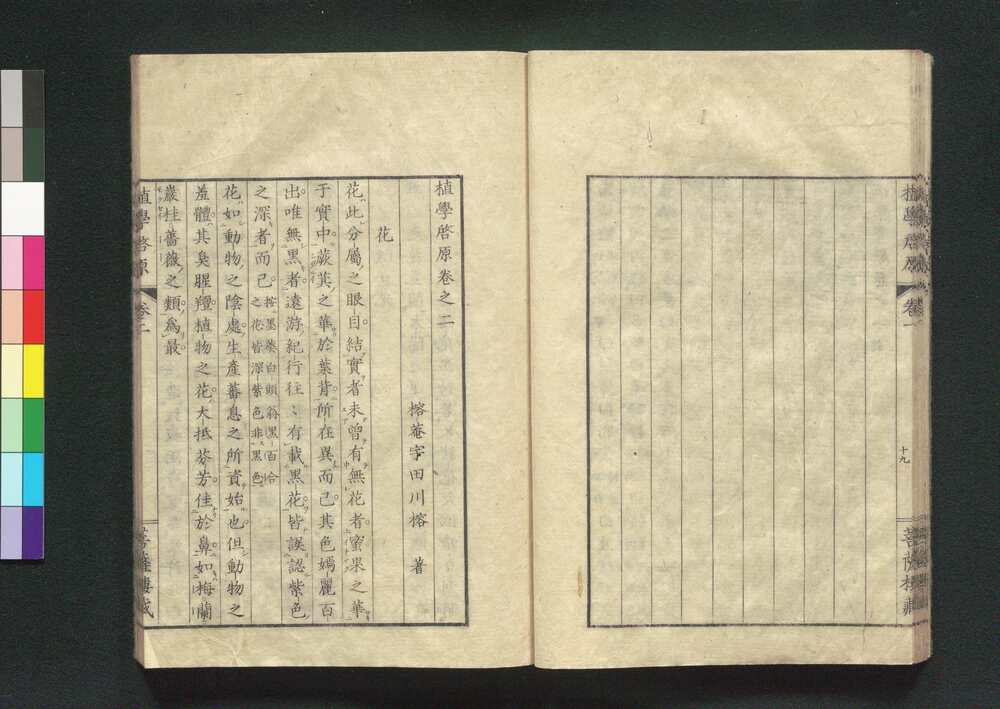 植學啓原
卷一
十九
菩薩樓藏
植學啓原卷之二
榕菴宇田川榕 著
花
花此分屬之眼目結實者未曾有無花者蜜果之華
于實中蕨萁之華於葉背所在異而已其色嫣麗百
出唯無黑者遠游紀行往〻有載黑花皆誤認紫色
之深者而已按墨藥白頭翁黑百合
之花皆深紫色非黑色
花如動物之陰處生產蕃息之所資始也但動物之
羞體其臭腥羶植物之花大抵芬芳佳於鼻如梅蘭
巖桂薔薇之類爲最
植學啓原
卷二
菩薩樓藏